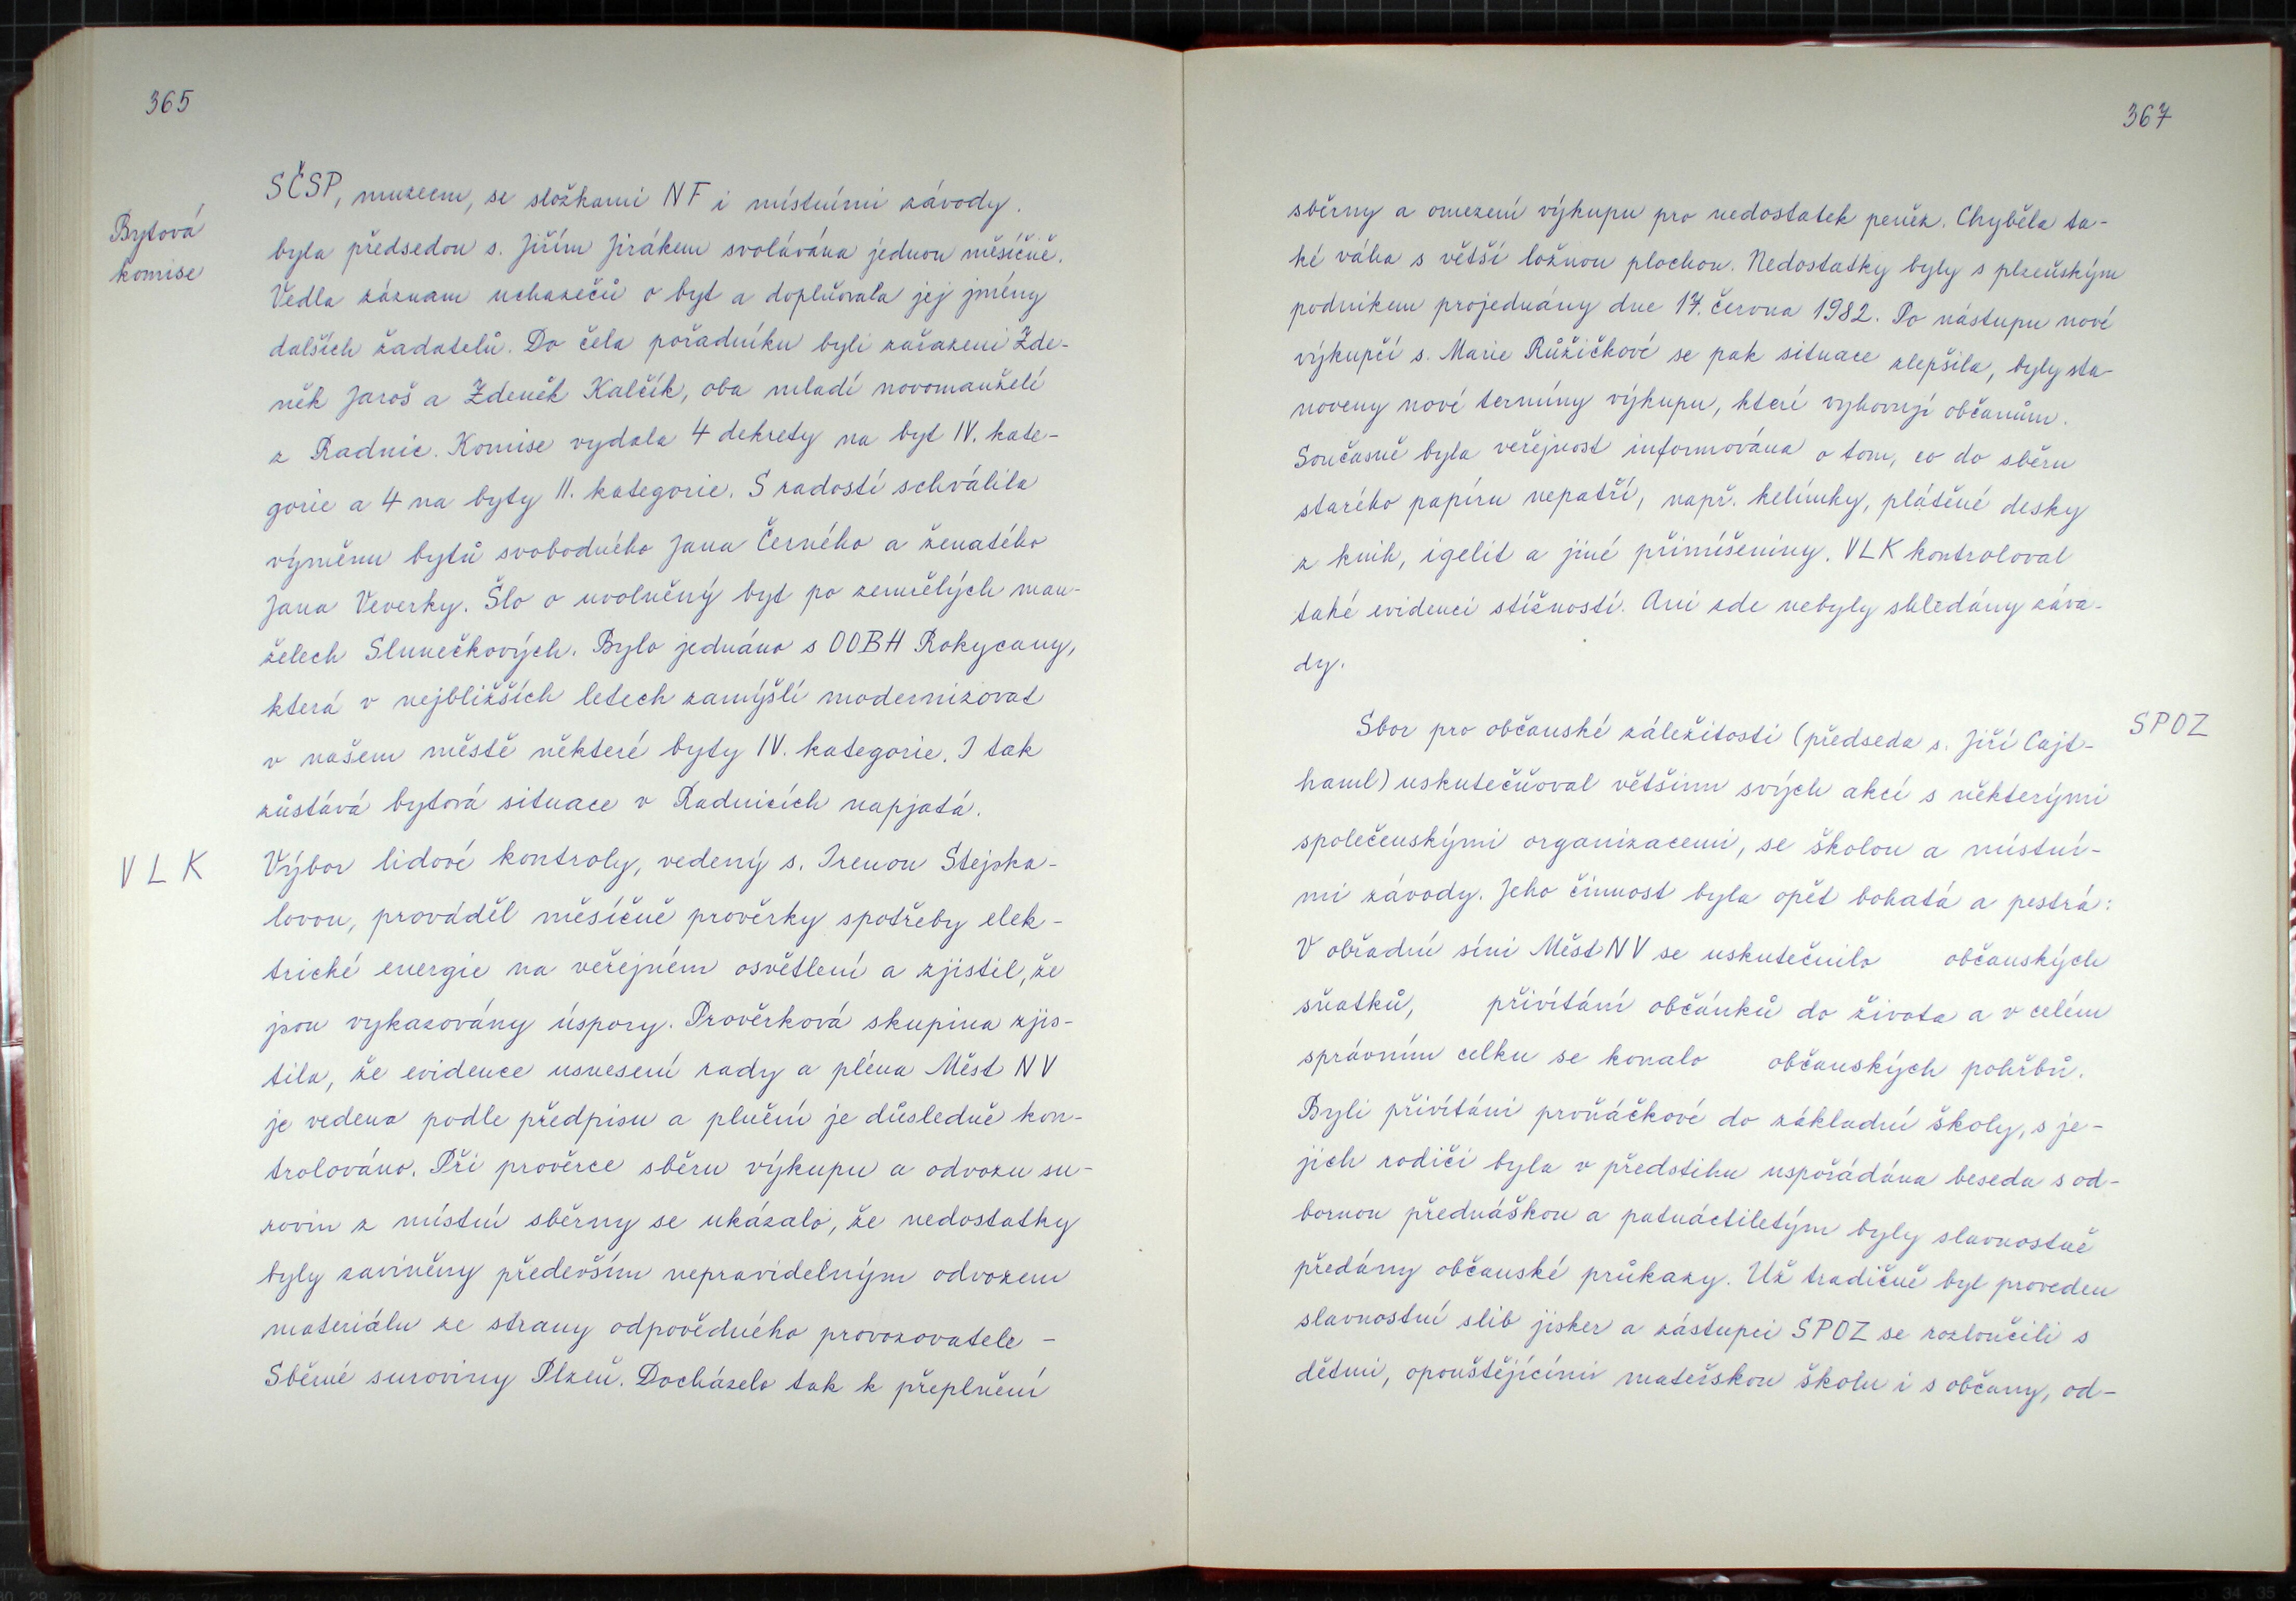 365
SČSP, muzeem, se složkami NF i místními závody.
Bytová
komise
byla předsedou s. Jiřím Jirákem svolávána jednou měsíčně.
Vedla záznam uchazečů o byt a doplňovala jej jmény
dalších žadatelů. Do čela pořadníku byli zařazeni Zde-
něk Jaroš a Zdeněk Kalčík, oba mladí novomanželé
z Radnic. Komise vydala 4 dekrety na byt IV. kate-
gorie a 4 na byty II. kategorie. S radostí schválila
výměnu bytů svobodného Jana Černého a ženatého
Jana Veverky. Šlo o uvolněný byt po zemřelých man-
želech Slunečkových. Bylo jednáno s OOBH Rokycany,
která v nejbližších letech zamýšlí modernizovat
v našem městě některé byty IV. kategorie. I tak
zůstává bytová situace v Radnicích napjatá.
VLK
Výbor lidové kontroly, vedený s. Irenou Stejska-
lovou, prováděl měsíčně prověrky spotřeby elek-
trické energie na veřejném osvětlení a zjistil, že
jsou vykazovány úspory. Prověrková skupina zjis-
tila, že evidence usnesení rady a pléna Měst NV
je vedena podle předpisu a plnění je důsledně kon-
trolováno. Při prověrce sběru výkupu a odvozu su-
rovin z místní sběrny se ukázalo, že nedostatky
byly zaviněny především nepravidelným odvozem
materiálu ze strany odpovědného provozovatele -
Sběrné suroviny Plzeň. Docházelo tak k přeplnění
367
sběrny a omezení výkupu pro nedostatek peněz. Chyběla ta-
ké váha s větší ložnou plochou. Nedostatky byly s plzeňským
podnikem projednány dne 17. června 1982. Po nástupu nové
výkupčí s. Marie Růžičkové se pak situace zlepšila, byly sta-
noveny nové termíny výkupu, které vyhovují občanům.
Současně byla veřejnost informována o tom, co do sběru
starého papíru nepatří, např. kelímky, plátěné desky
z knih, igelit a jiné přimíšeniny. VLK kontroloval
také evidenci stížností. Ani zde nebyly shledány záva-
dy.
Sbor pro občanské záležitosti (předseda s. Jiří Cajt-
SPOZ
haml) uskutečňoval většinu svých akcí s některými
společenskými organizacemi, se školou a místní-
mi závody. Jeho činnost byla opět bohatá a pestrá:
V obřadní síni Měst NV se uskutečnilo občanských
sňatků, přivítání občánků do života a v celém
správním celku se konalo občanských pohřbů.
Byli přivítáni prvňáčkové do základní školy, s je-
jich rodiči byla v předstihu uspořádána beseda s od-
bornou přednáškou a patnáctiletým byly slavnostně
předány občanské průkazy. Už tradičně byl proveden
slavnostní slib jisker a zástupci SPOZ se rozloučili s
dětmi, opouštějícími mateřskou školu i s občany, od-